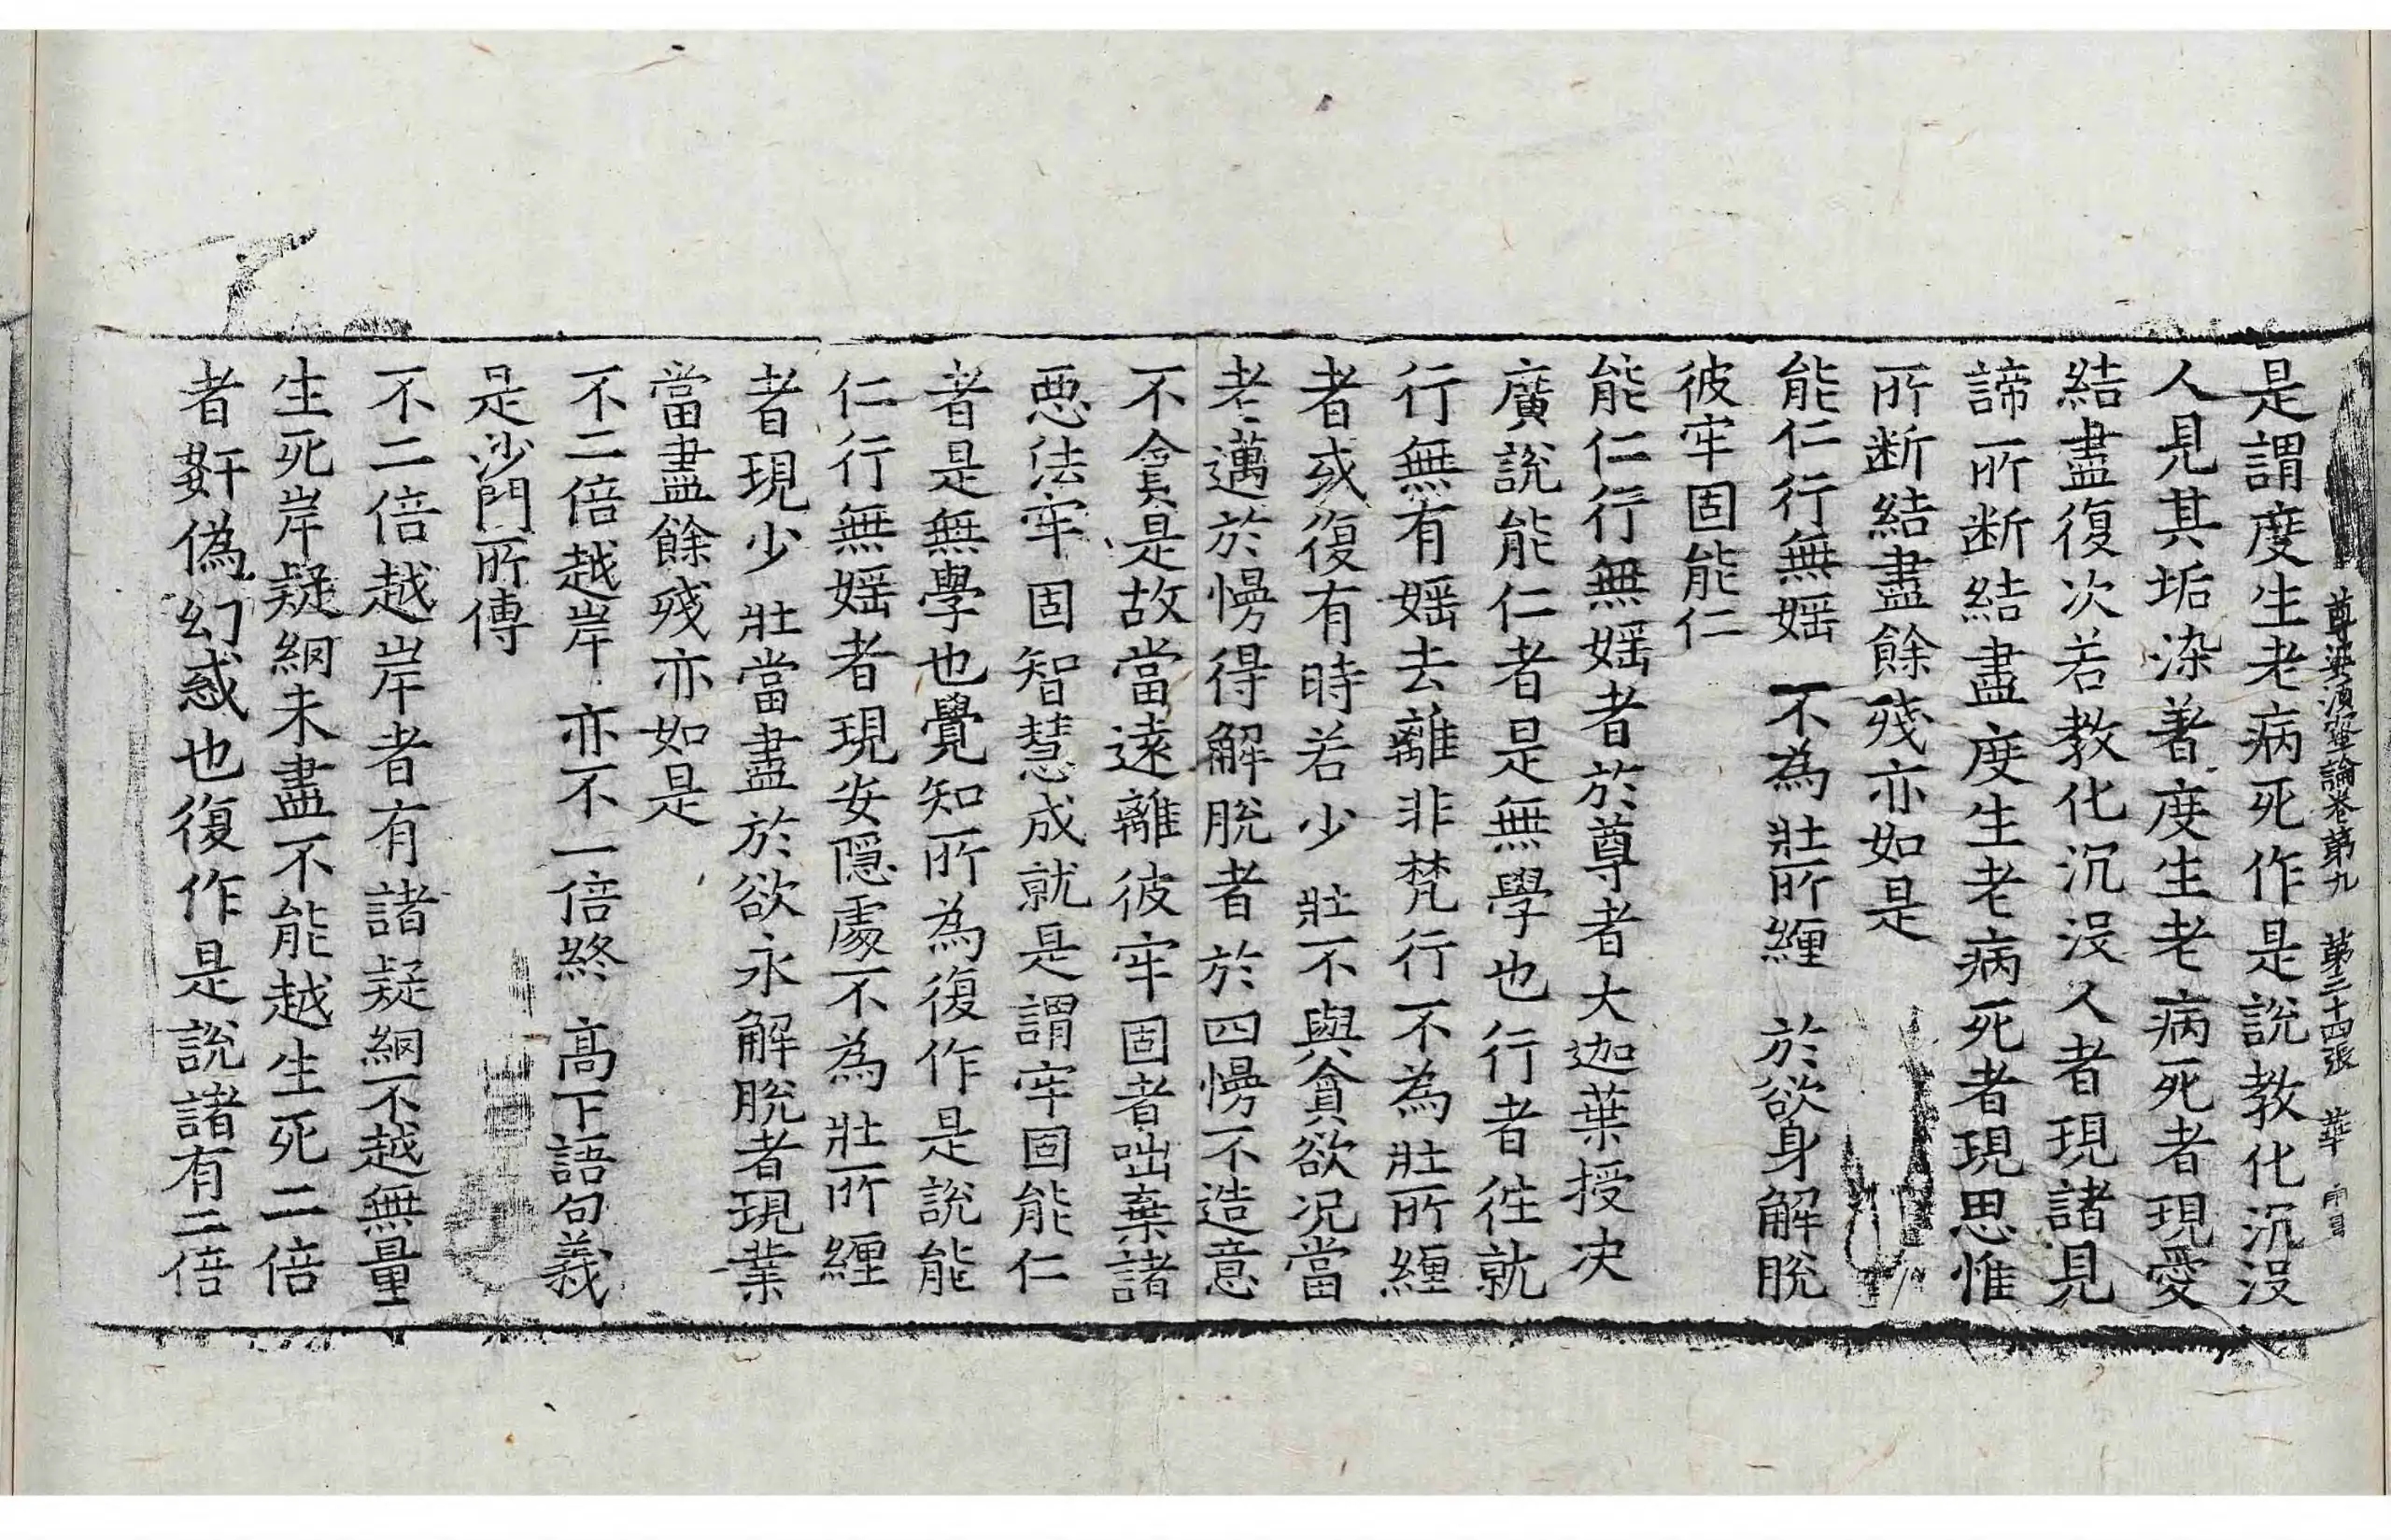 尊婆須蜜論卷第九　第三十四張　華
是謂度生老病死作是說教化沉没
人見其垢染著度生老病死者現愛
結盡復次若教化沉没人者現諸見
諦所断結盡度生老病死者現思惟
所断結盡餘殘亦如是
能仁行無婬　不為壯所纏　於欲身解脫
彼牢固能仁
能仁行無婬者於尊者大迦葉授决
廣說能仁者是無學也行者徃就
行無有婬去離非梵行不為壯所纏
者或復有時若少壯不與貪欲况當
老邁於憍得解脫者於四憍不造意
不貪是故當遠離彼牢固者咄棄諸
惡法牢固智慧成就是謂牢固能仁
者是無學也覺知所為復作是說能
仁行無婬者現安隱處不為壯所纏
者現少壯當盡於欲永解脫者現業
當盡餘殘亦如是
不二倍越岸　亦不一倍終　高下語句義
是沙門所傳
不二倍越岸者有諸疑網不越無量
生死岸疑網未盡不能越生死二倍
者姧偽幻惑也復作是說諸有二倍